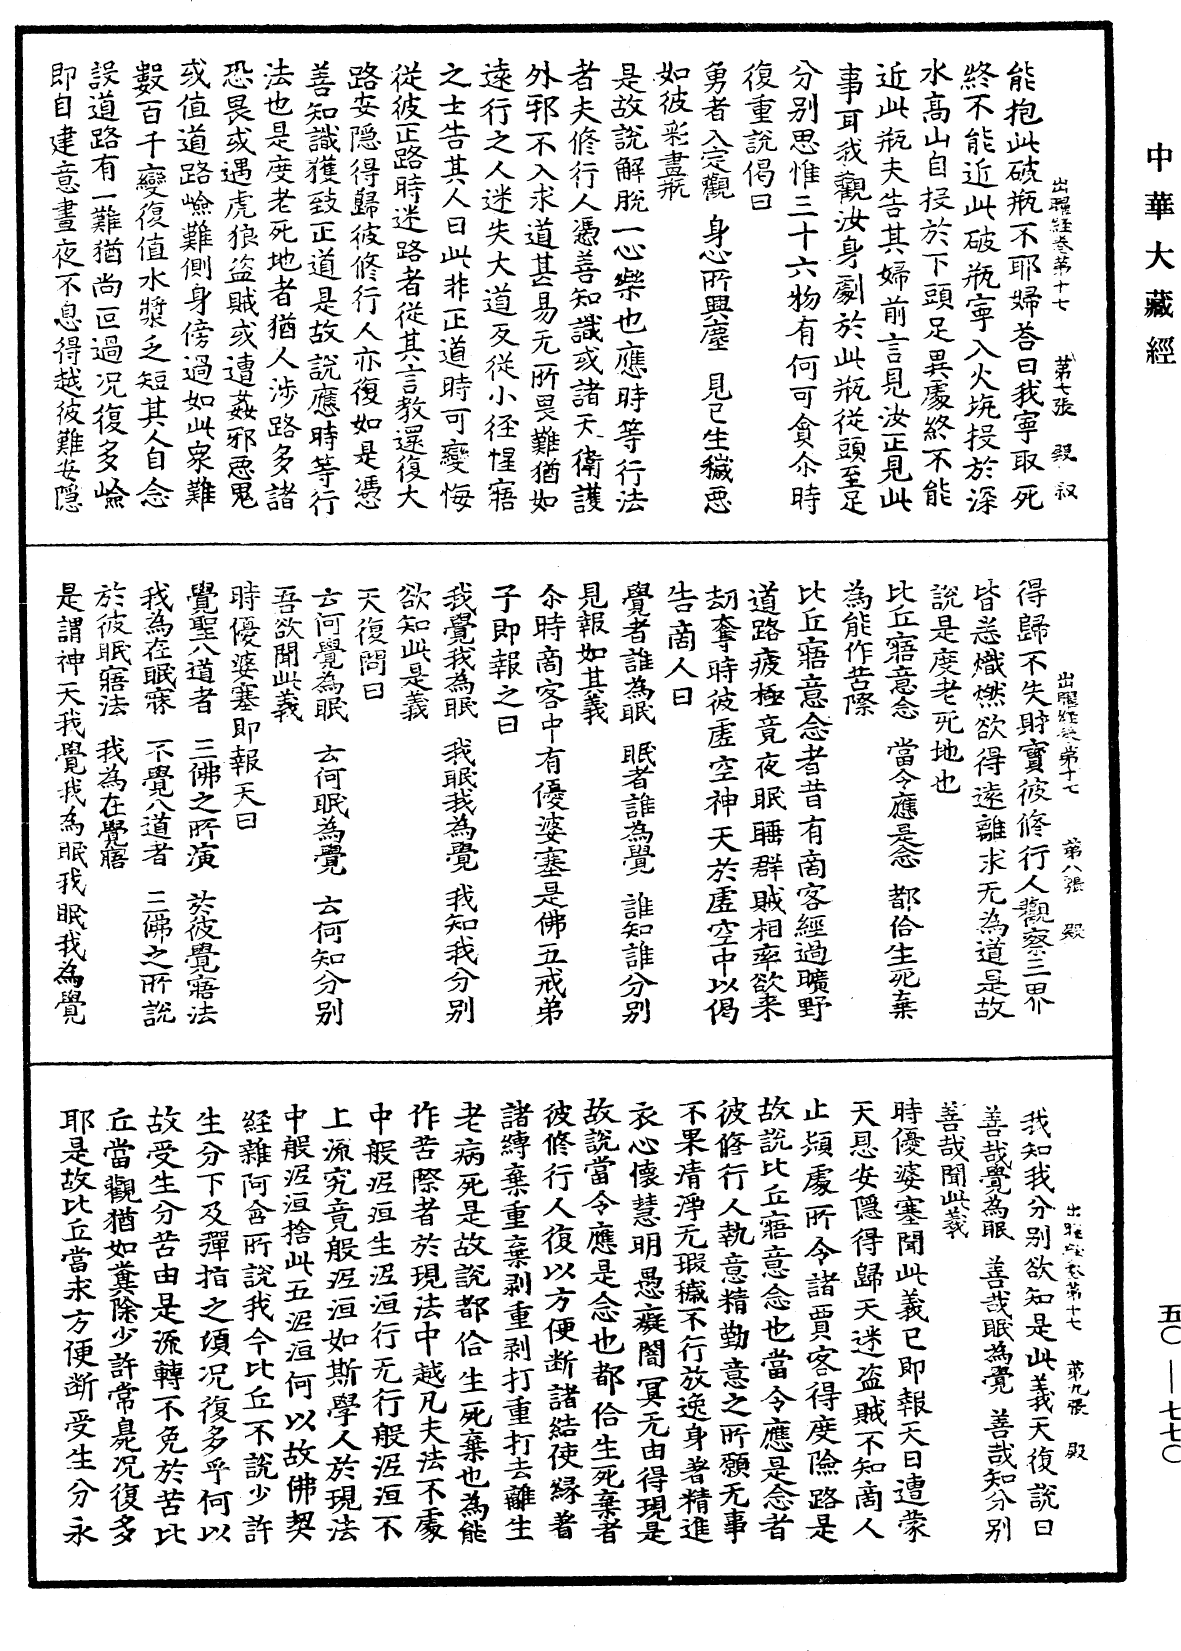 中華大藏經
出曜經卷第十七　第七張　殿　叔
能抱此破瓶不耶婦荅曰我寧取死
終不能近此破瓶寧入火坑投於深
水高山自投於下頭足異處終不能
近此瓶夫告其婦前言見汝正見此
事耳我觀汝身劇於此瓶從頭至足
分别思惟三十六物有何可貪尒時
復重說偈曰
勇者入定觀　身心所興塵　見已生穢惡
如彼彩畫瓶
是故說解脫一心樂也應時等行法
者夫修行人憑善知識或諸天衛護
外邪不入求道甚易无所畏難猶如
遠行之人迷失大道反從小徑惺寤
之士告其人曰此非正道時可變悔
從彼正路時迷路者從其言教還復大
路安隱得歸彼修行人亦復如是憑
善知識獲致正道是故說應時等行
法也是度老死地者猶人涉路多諸
恐畏或遇虎狼盜賊或遭姦邪惡鬼
或值道路嶮難側身傍過如此衆難
數百千變復值水漿乏短其人自念
設道路有一難猶尚叵過況復多嶮
即自建意晝夜不息得越彼難安隱
出曜經卷第十七　第八張　殿
得歸不失財寶彼修行人觀察三界
皆悉熾燃欲得遠離求无為道是故
說是度老死地也
比丘寤意念　當令應是念　都佮生死棄
為能作苦際
比丘寤意念者昔有商客經過曠野
道路疲極竟夜眠睡群賊相率欲來
劫奪時彼虛空神天於虛空中以偈
告商人曰
覺者誰為眠　眠者誰為覺　誰知誰分别
見報如其義
尒時商客中有優婆塞是佛五戒弟
子即報之曰
我覺我為眠　我眠我為覺　我知我分别
欲知此是義
天復問曰
云何覺為眠　云何眠為覺　云何知分别
吾欲聞此義
時優婆塞即報天曰
覺聖八道者　三佛之所演　於彼覺寤法
我為在眠寐　不覺八道者　三佛之所說
於彼眠寤法　我為在覺寤
是謂神天我覺我為眠我眠我為覺
出曜經卷第十七　第九張　殿
我知我分别欲知是此義天復說曰
善哉覺為眠　善哉眠為覺　善哉知分别
善哉聞此義
時優婆塞聞此義已即報天曰遭蒙
天恩安隱得歸天迷盜賊不知商人
止頓處所令諸賈客得度險路是
故說比丘寤意念也當令應是念者
彼修行人執意精勤意之所願无事
不果清淨无瑕穢不行放逸身著精進
衣心懷慧明愚癡闇冥无由得現是
故說當令應是念也都佮生死棄者
彼修行人復以方便斷諸結使緣著
諸縛棄重棄剥重剥打重打去離生
老病死是故說都佮生死棄也為能
作苦際者於現法中越凡夫法不處
中般泥洹生泥洹行无行般泥洹不
上流究竟般泥洹如斯學人於現法
中般泥洹捨此五泥洹何以故佛契
經雜阿含所說我今比丘不說少許
生分下及彈指之頃況復多乎何以
故受生分苦由是流轉不免於苦比
丘當觀猶如糞除少許常臭況復多
耶是故比丘當求方便斷受生分永
五〇——七七〇